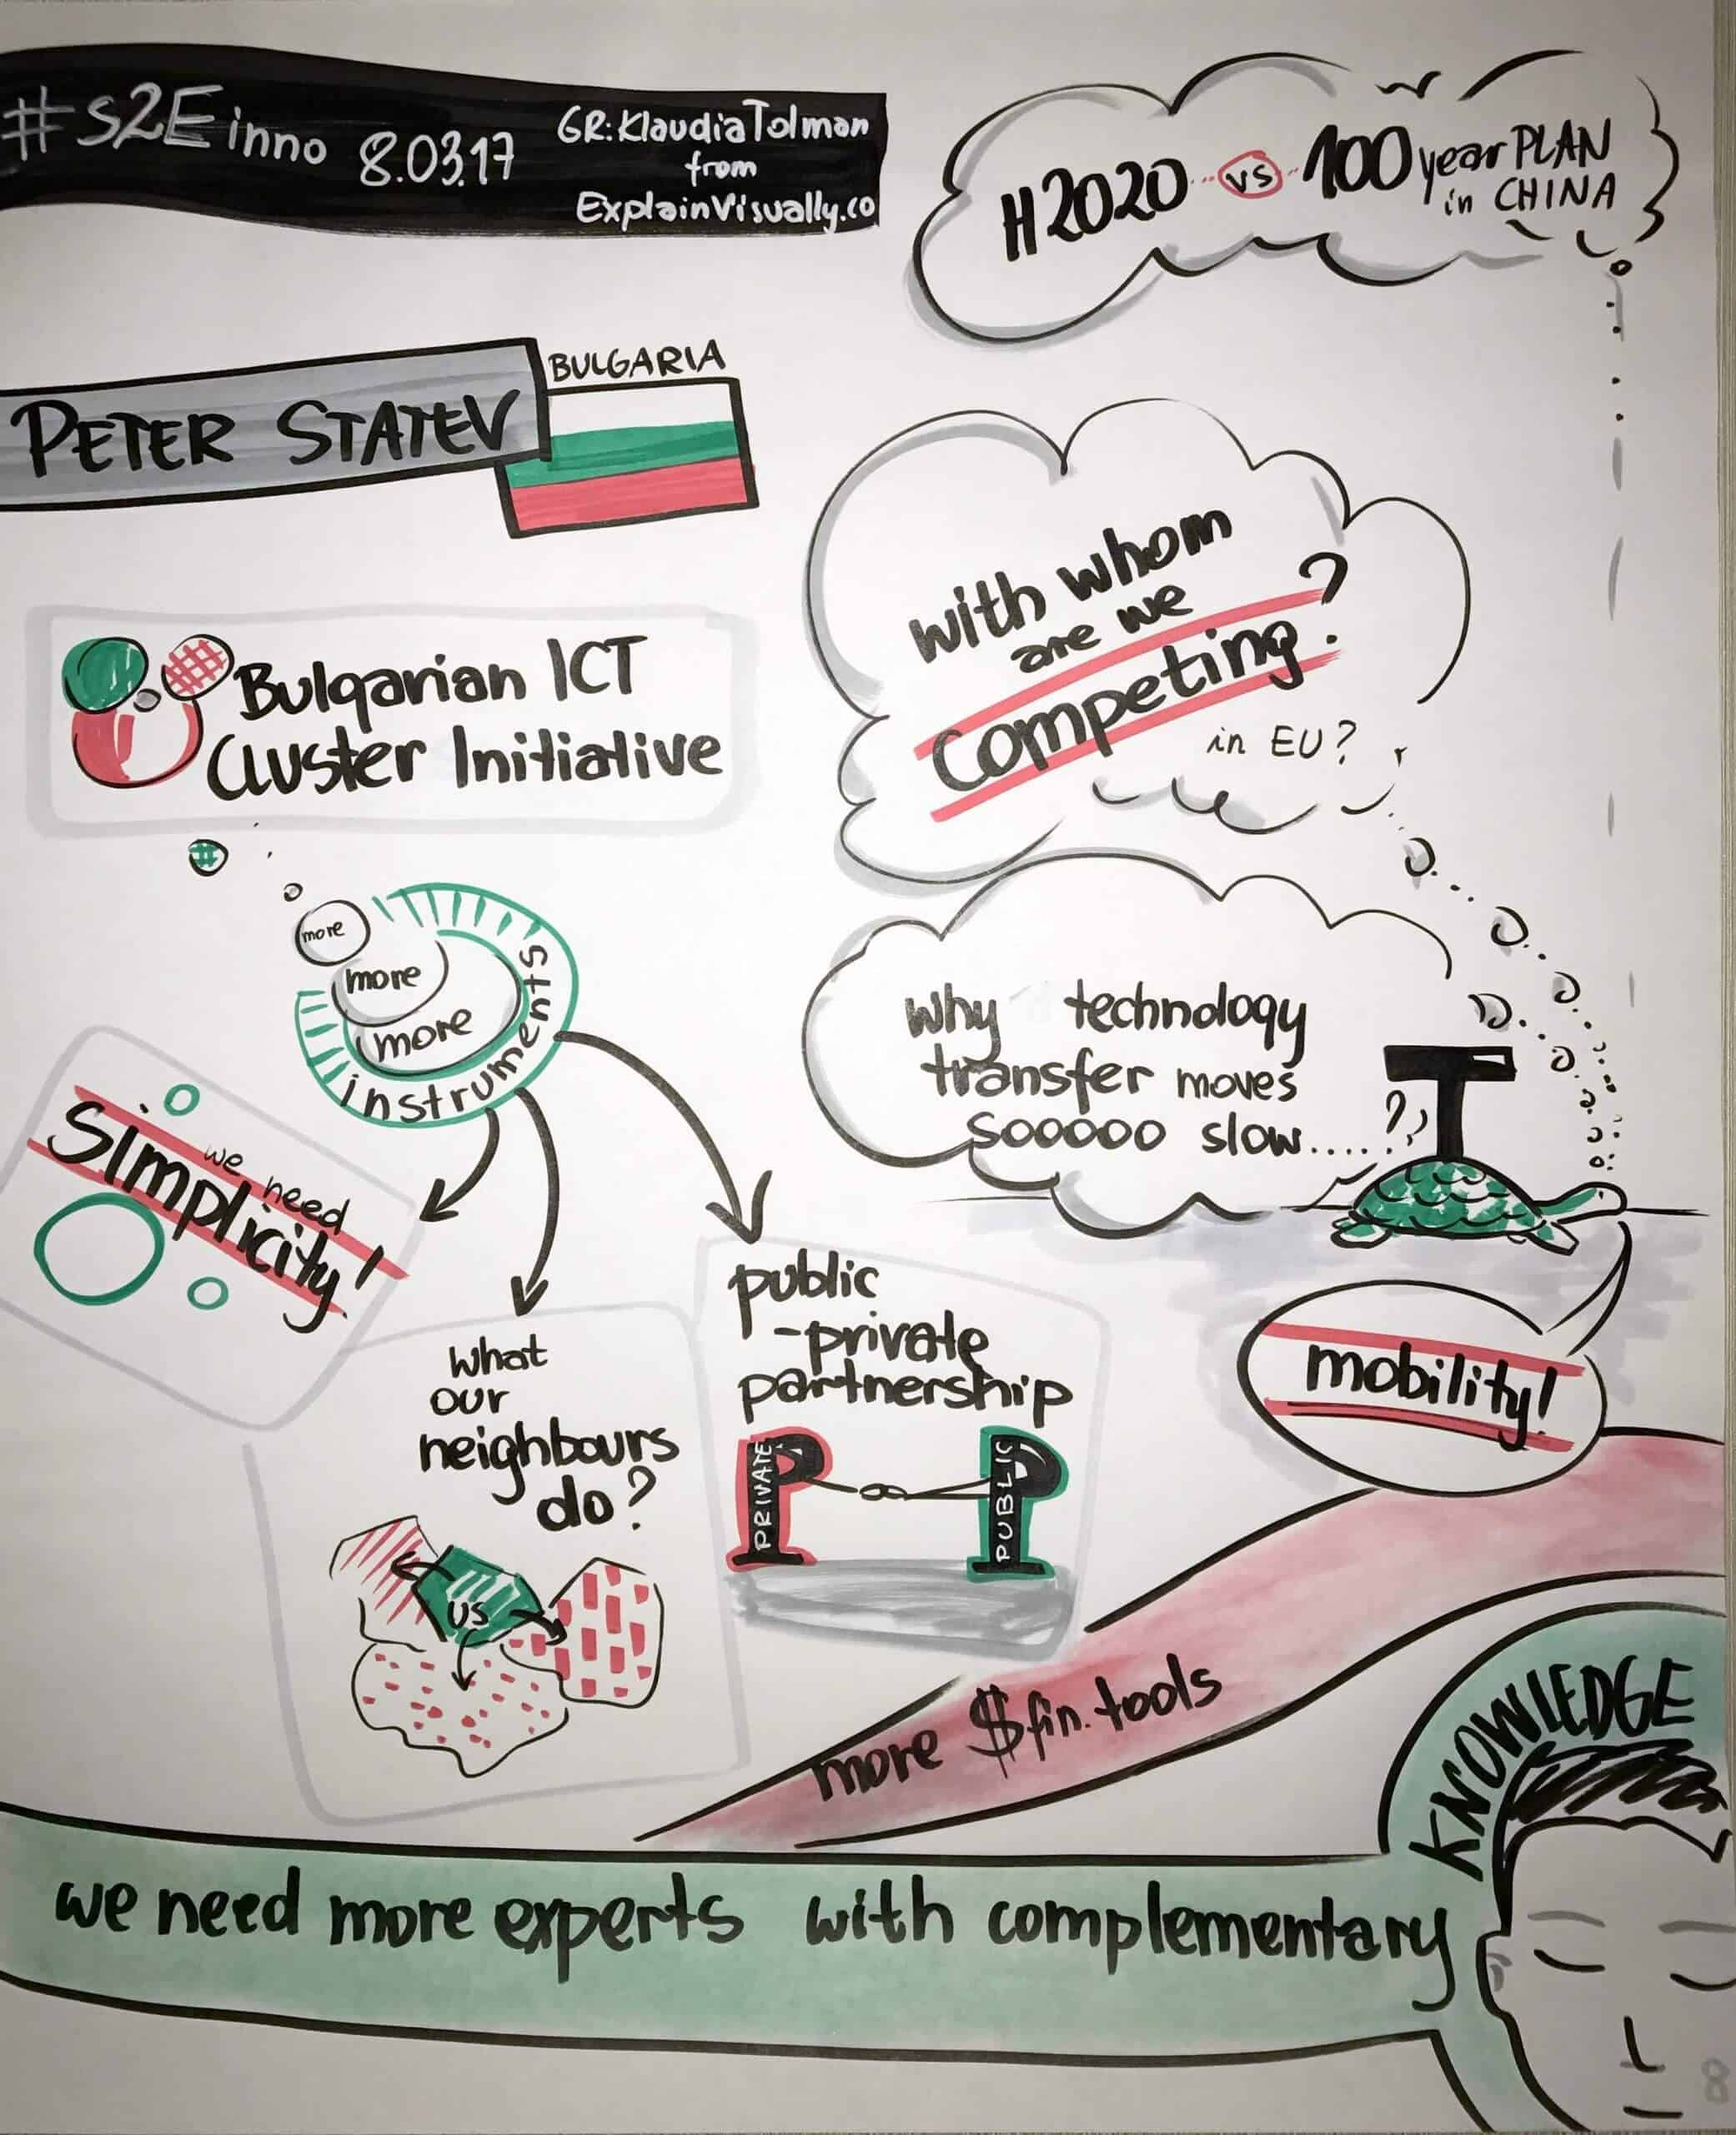 #s2Einno 8.03.17
GR: Klaudia Tolman
from
ExplainVisually.co
H2020 vs 100 year PLAN
in CHINA
PETER STATEV
BULGARIA
with whom
are we
competing?
in EU?
Bulgarian ICT
Cluster Initiative
more
more
more
instruments
why technology
transfer moves
sooooo slow.....??
T
we need
simplicity!
what
our
neighbours
do?
US
public
-private
partnership
PRIVATE
PUBLIC
mobility!
more $fin. tools
we need more experts with complementary
KNOWLEDGE
8